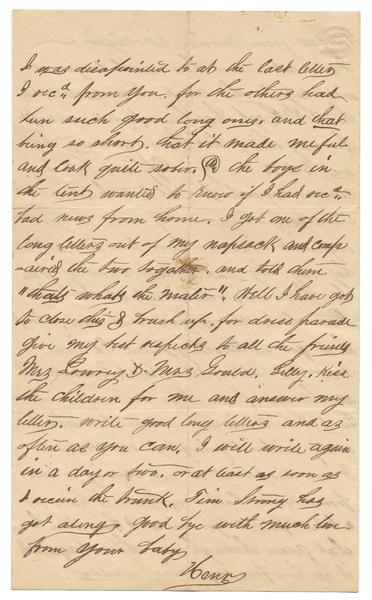 I was disapointed to at the last letter
I recd from you. for the others had
been such good long ones. and that
being so short. that it made me ful
and look quite sober. the boys in
the tent wanted to know if I had recd
bad news from home. I got one of the
long letters out of my napsack and comp
-aired the two together. and told them
"thats whats the mater". Well I have got
to close this & brush up. for dress parade
give my best respects to all the friends
Mrs Lowrey & Mrs Gould. Lilly. kiss
the children for me and answer my
letter. write good long letters and as
often as you can. I will write again
in a day or two. or at least as soon as
I receive the trunk. Tim Strong has
got along. good bye with much love
from your baby
Henry